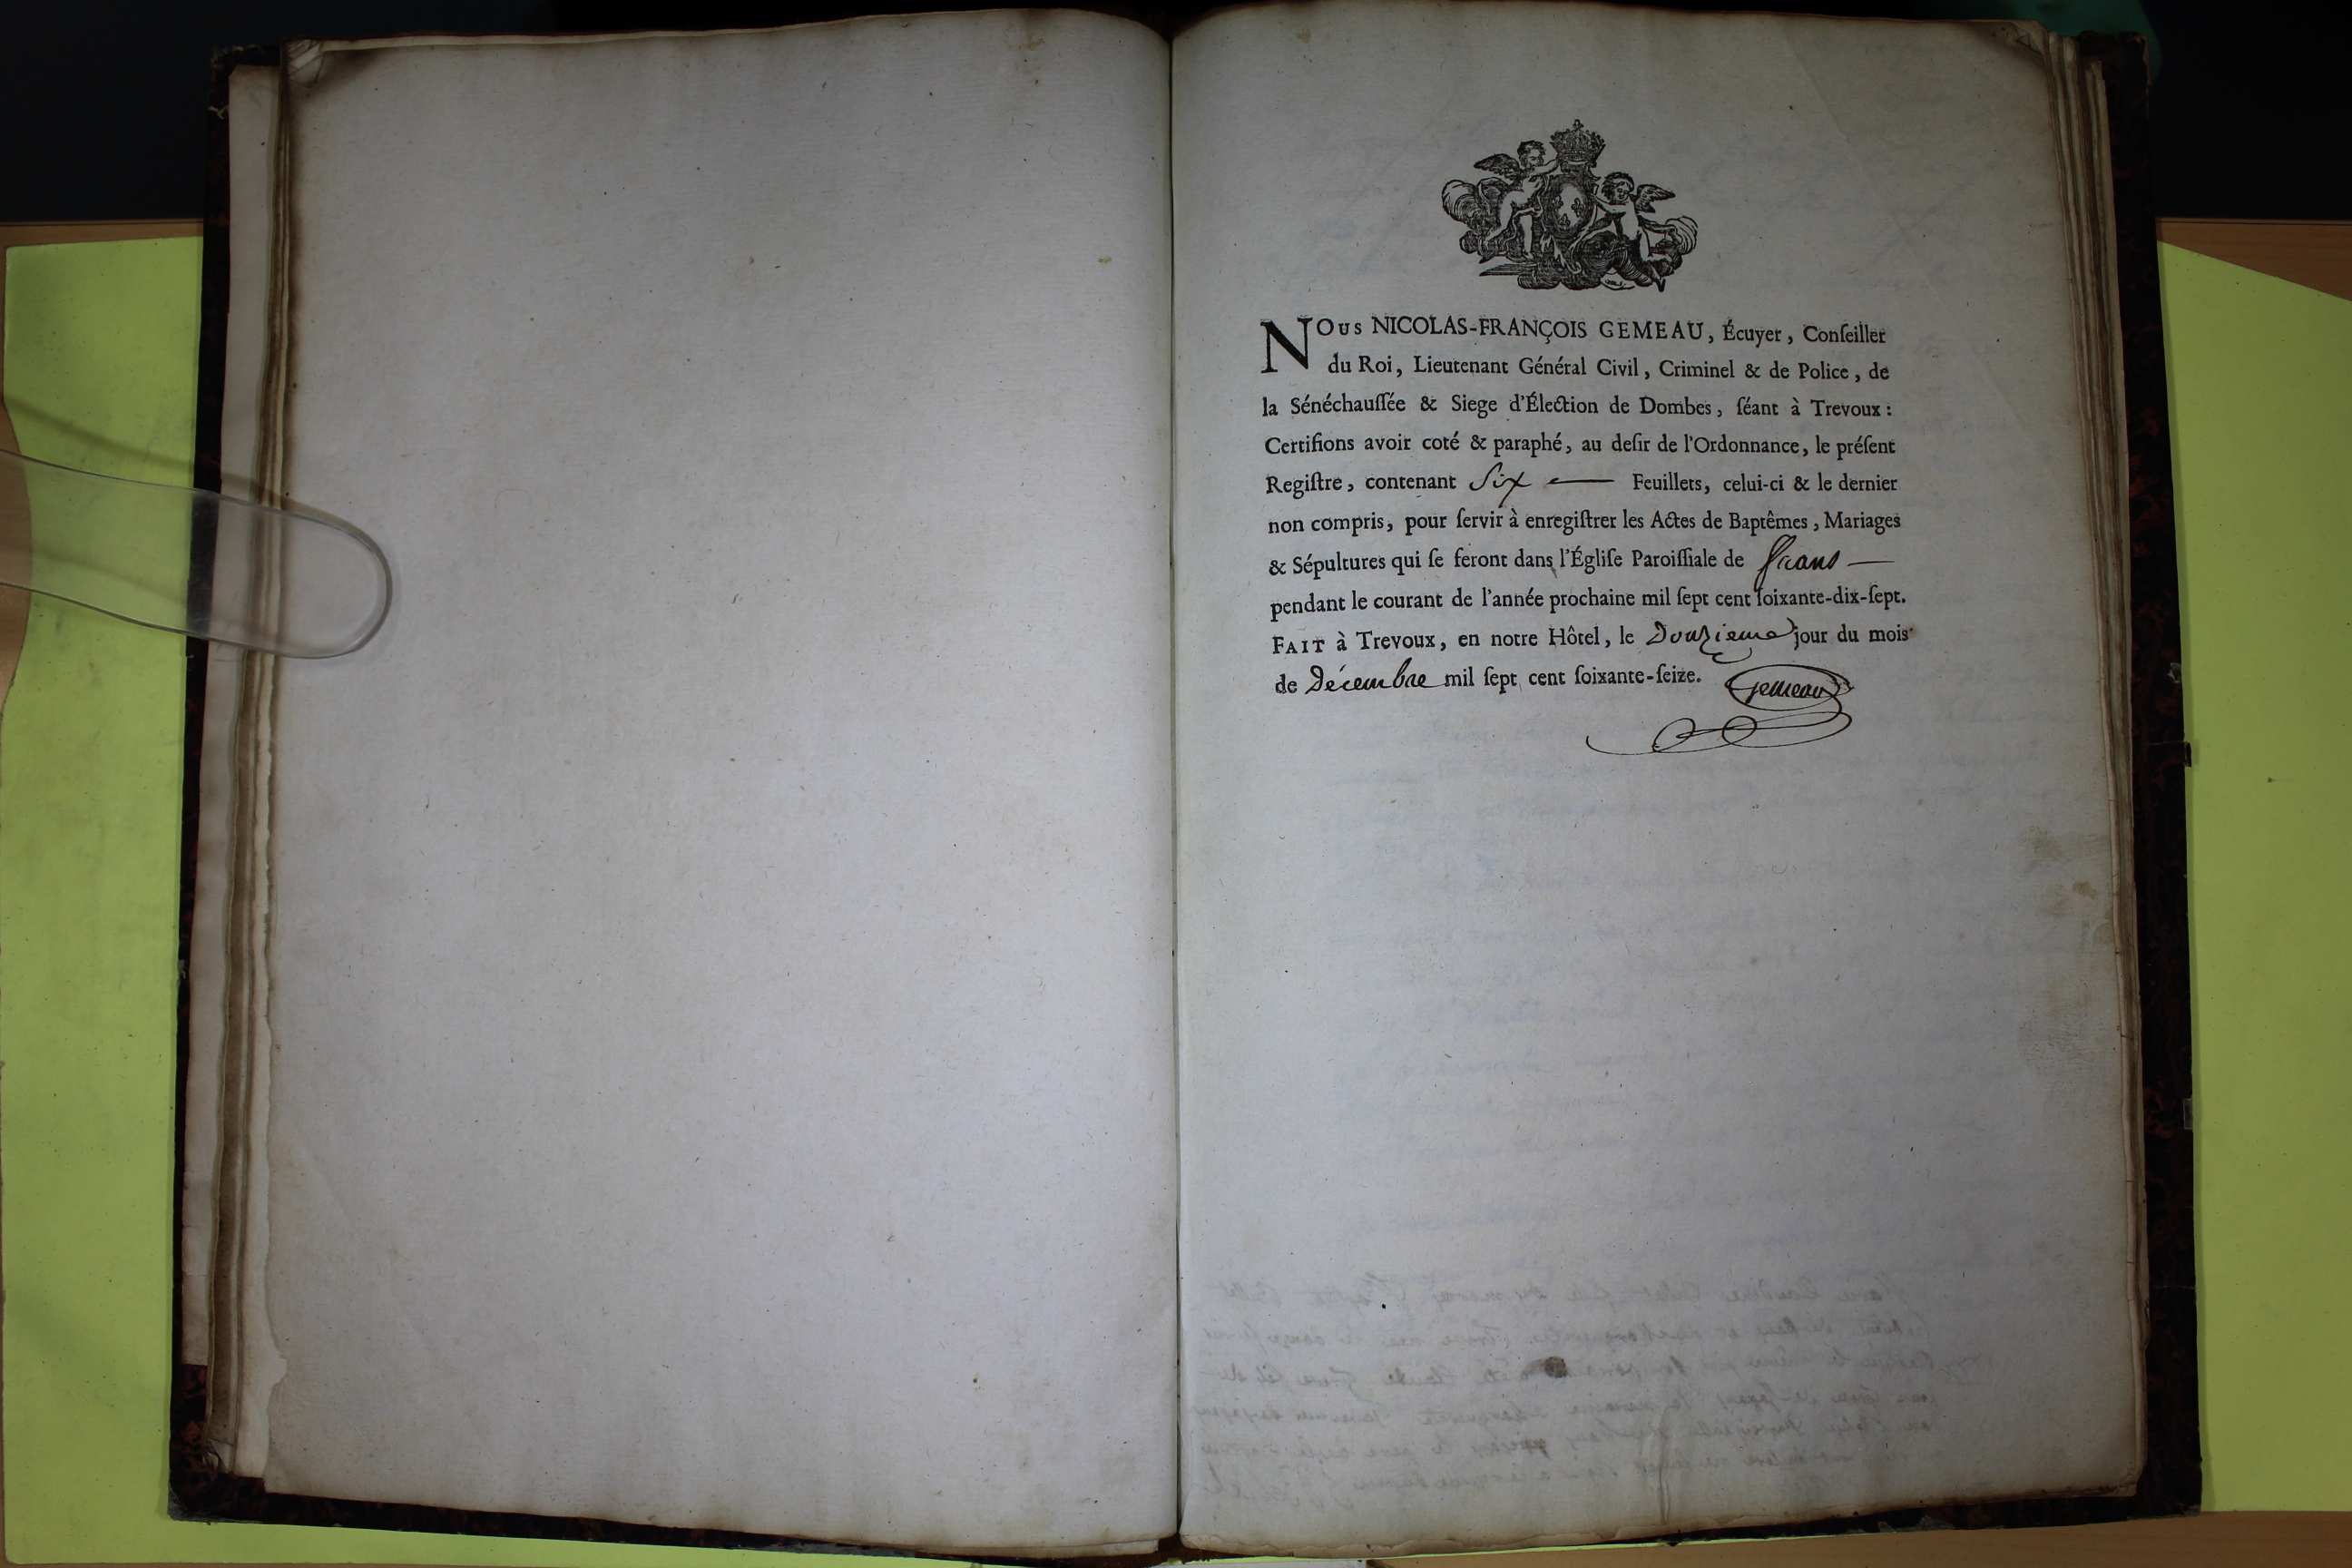 NOus NICOLAS-FRANÇOIS GEMEAU, Écuyer, Conſeiller
du Roi, Lieutenant Général Civil, Criminel & de Police, de
la Sénéchauſſée & Siege d'Élection de Dombes, ſéant à Trevoux :
Certifions avoir coté & paraphé, au deſir de l'Ordonnance, le préſent
Regiſtre, contenant Six — Feuillets, celui-ci & le dernier
non compris, pour ſervir à enregiſtrer les Actes de Baptêmes, Mariages
& Sépultures qui ſe feront dans l'Égliſe Paroiſſiale de frans —
pendant le courant de l'année prochaine mil ſept cent ſoixante-dix-ſept.
FAIT à Trevoux, en notre Hôtel, le Douzieme jour du mois
de Décembre mil ſept cent ſoixante-ſeize. Gemeau